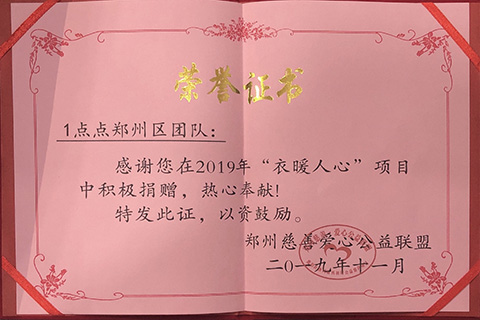 荣誉证书
1点点郑州区团队：
感谢您在2019年“衣暖人心”项目
中积极捐赠，热心奉献！
特发此证，以资鼓励。
郑州慈善爱心公益联盟
二〇一九年十一月